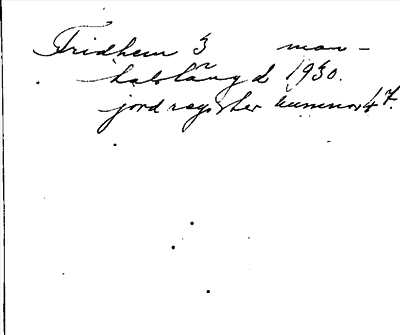 Fridhem 3 man-
talslängd 1930.
jordregister nummer 47.